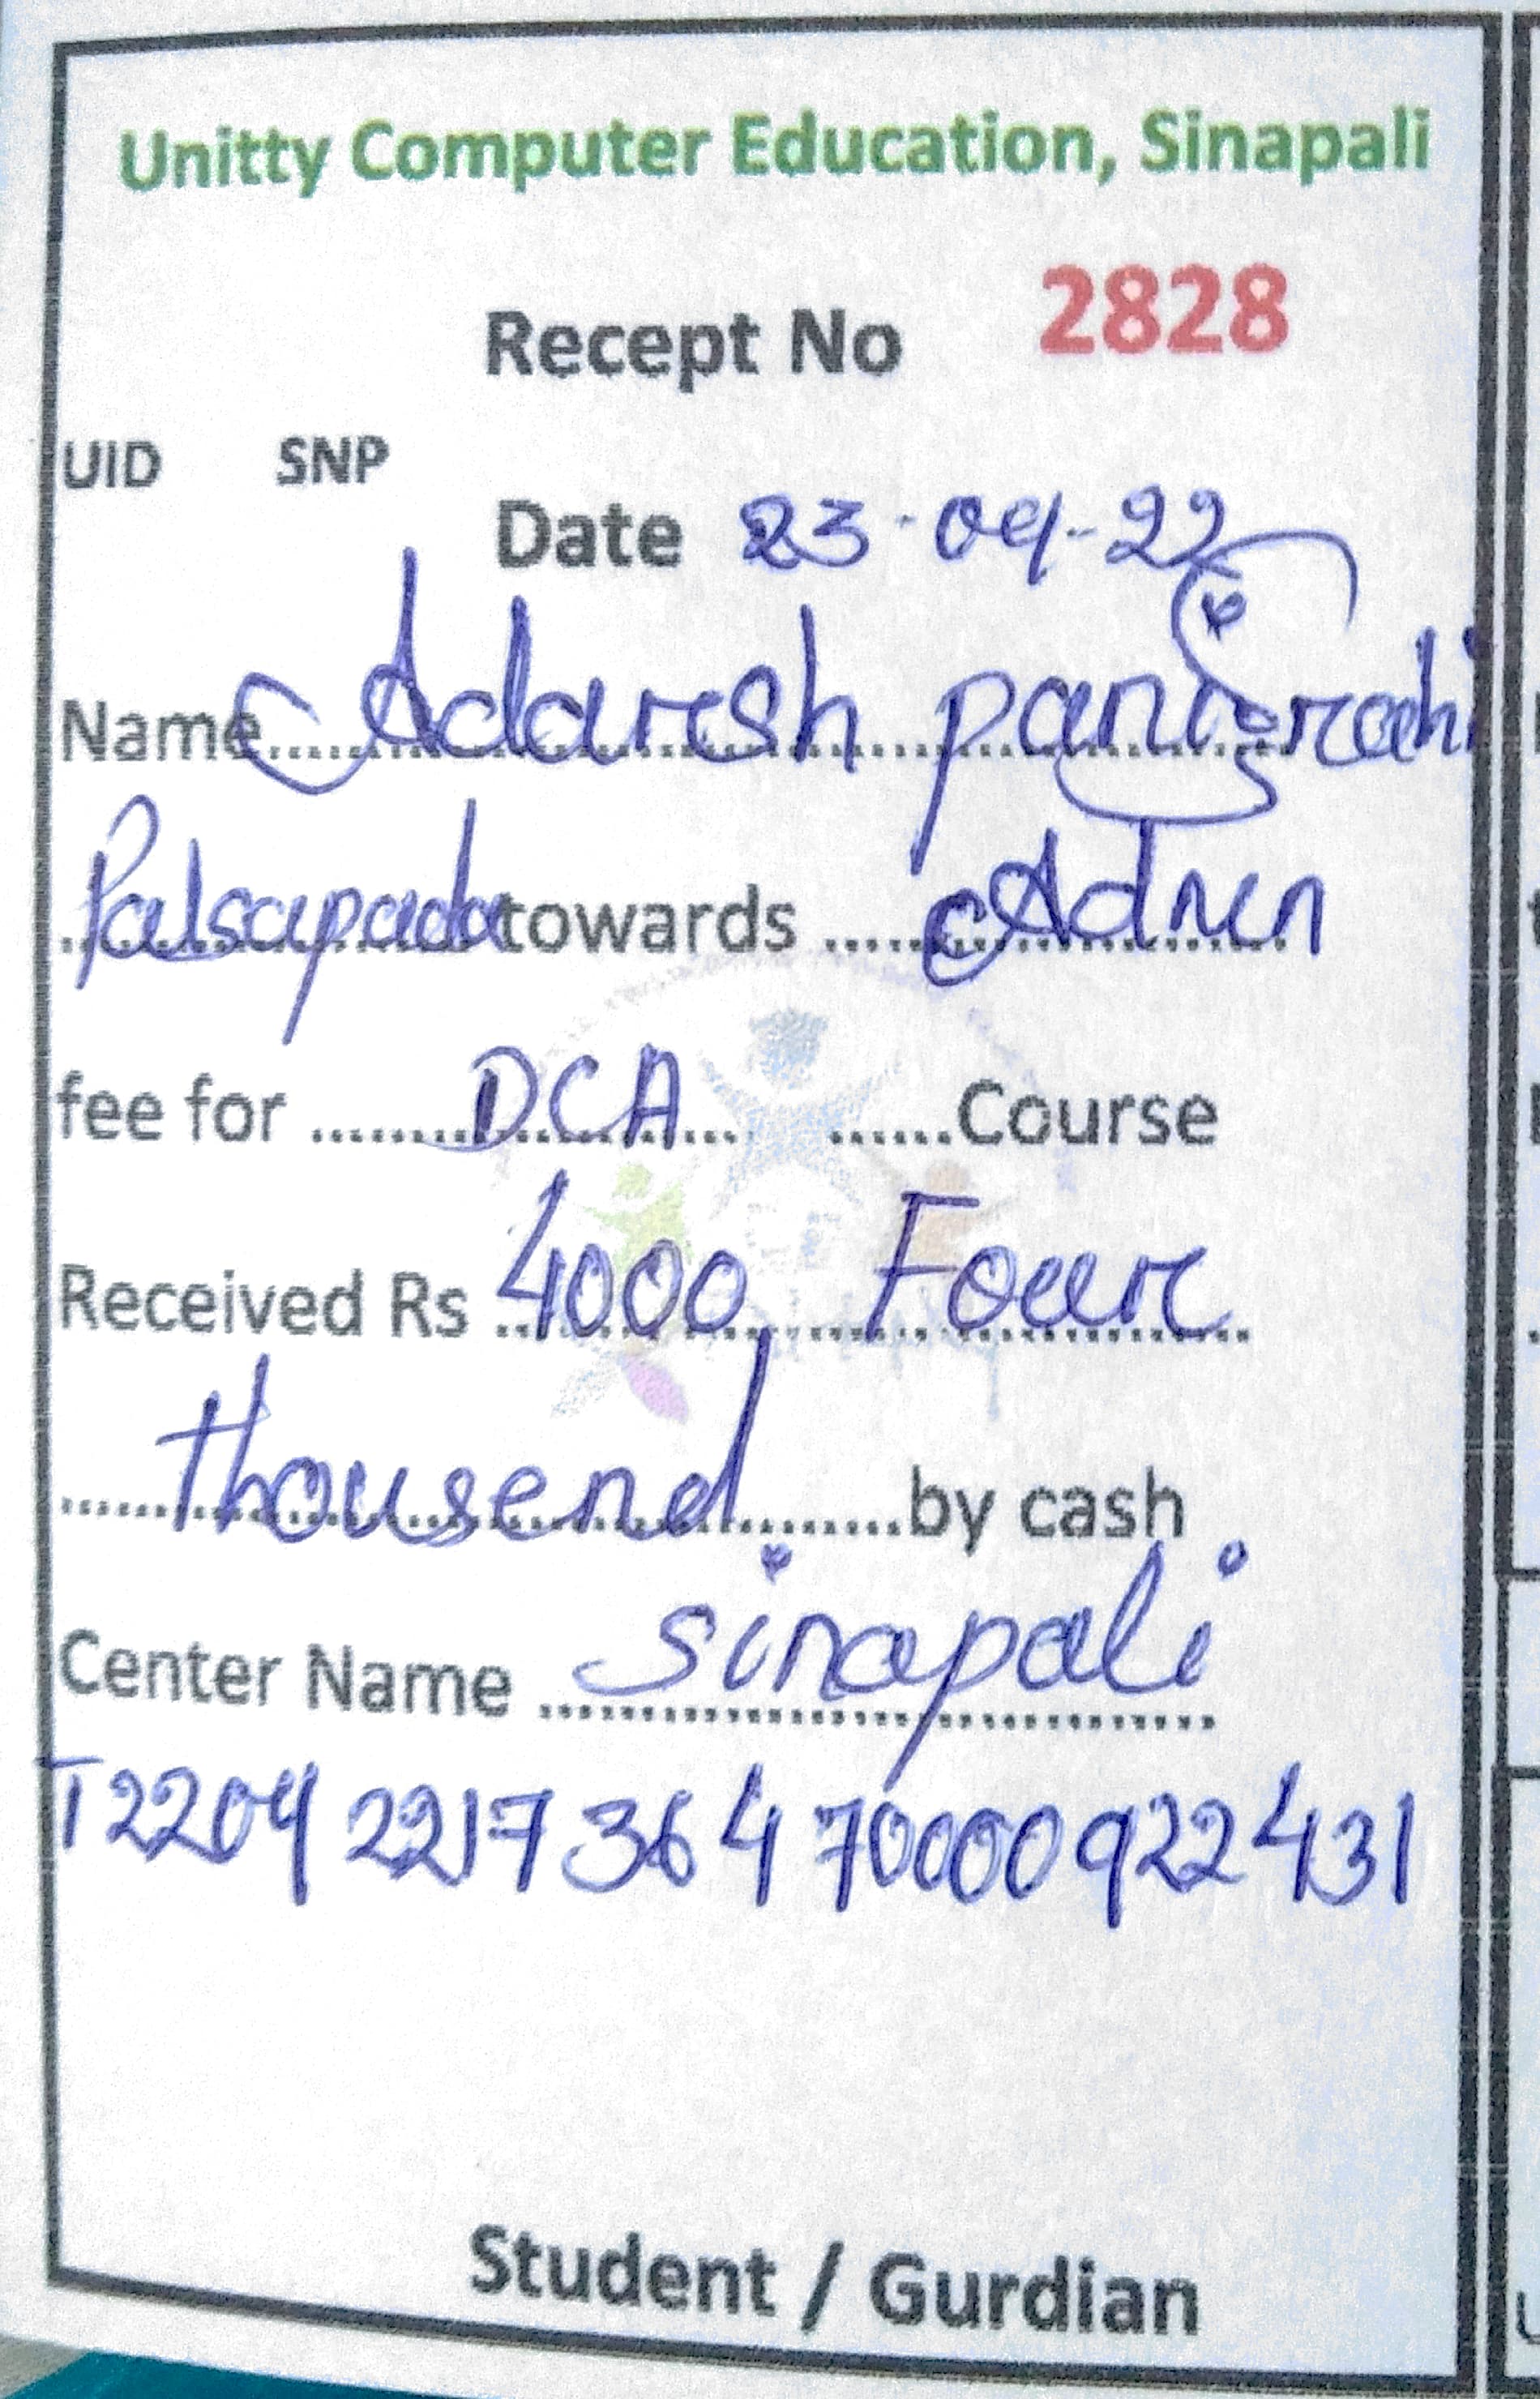 Unitty Computer Education, Sinapali
Recept No 2828
UID SNP
Date 23-04-22
Name Adaresh panigrahi
Palsapada towards Admn
fee for DCA Course
Received Rs 4000 Four
thousend by cash
Center Name sinapali
T2204221736470000922431
Student / Gurdian